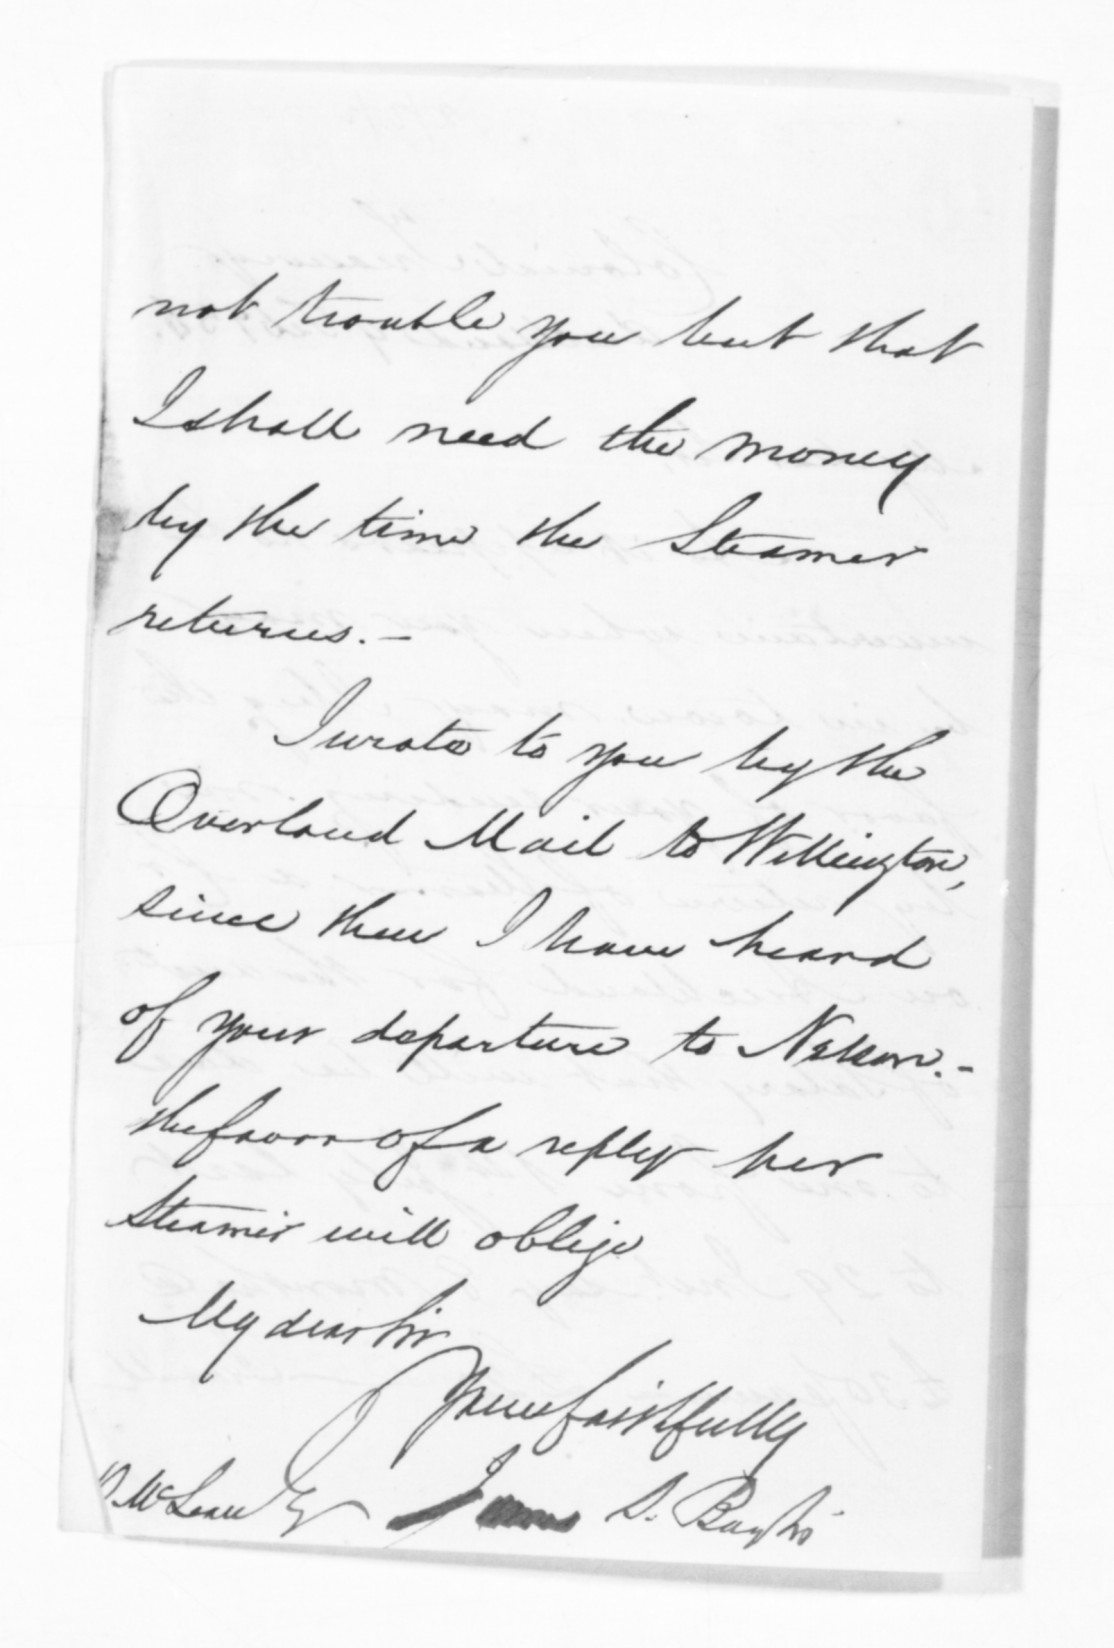 not trouble you but that
I shall need the money
by the time the Steamer
returns. –
I wrote to you by the
Overland Mail to Wellington,
since then I have heard
of your departure to Nelson. –
the favor of a reply per
Steamer will oblige
My dear Sir
Yours faithfully
D. McLean Esq James S.